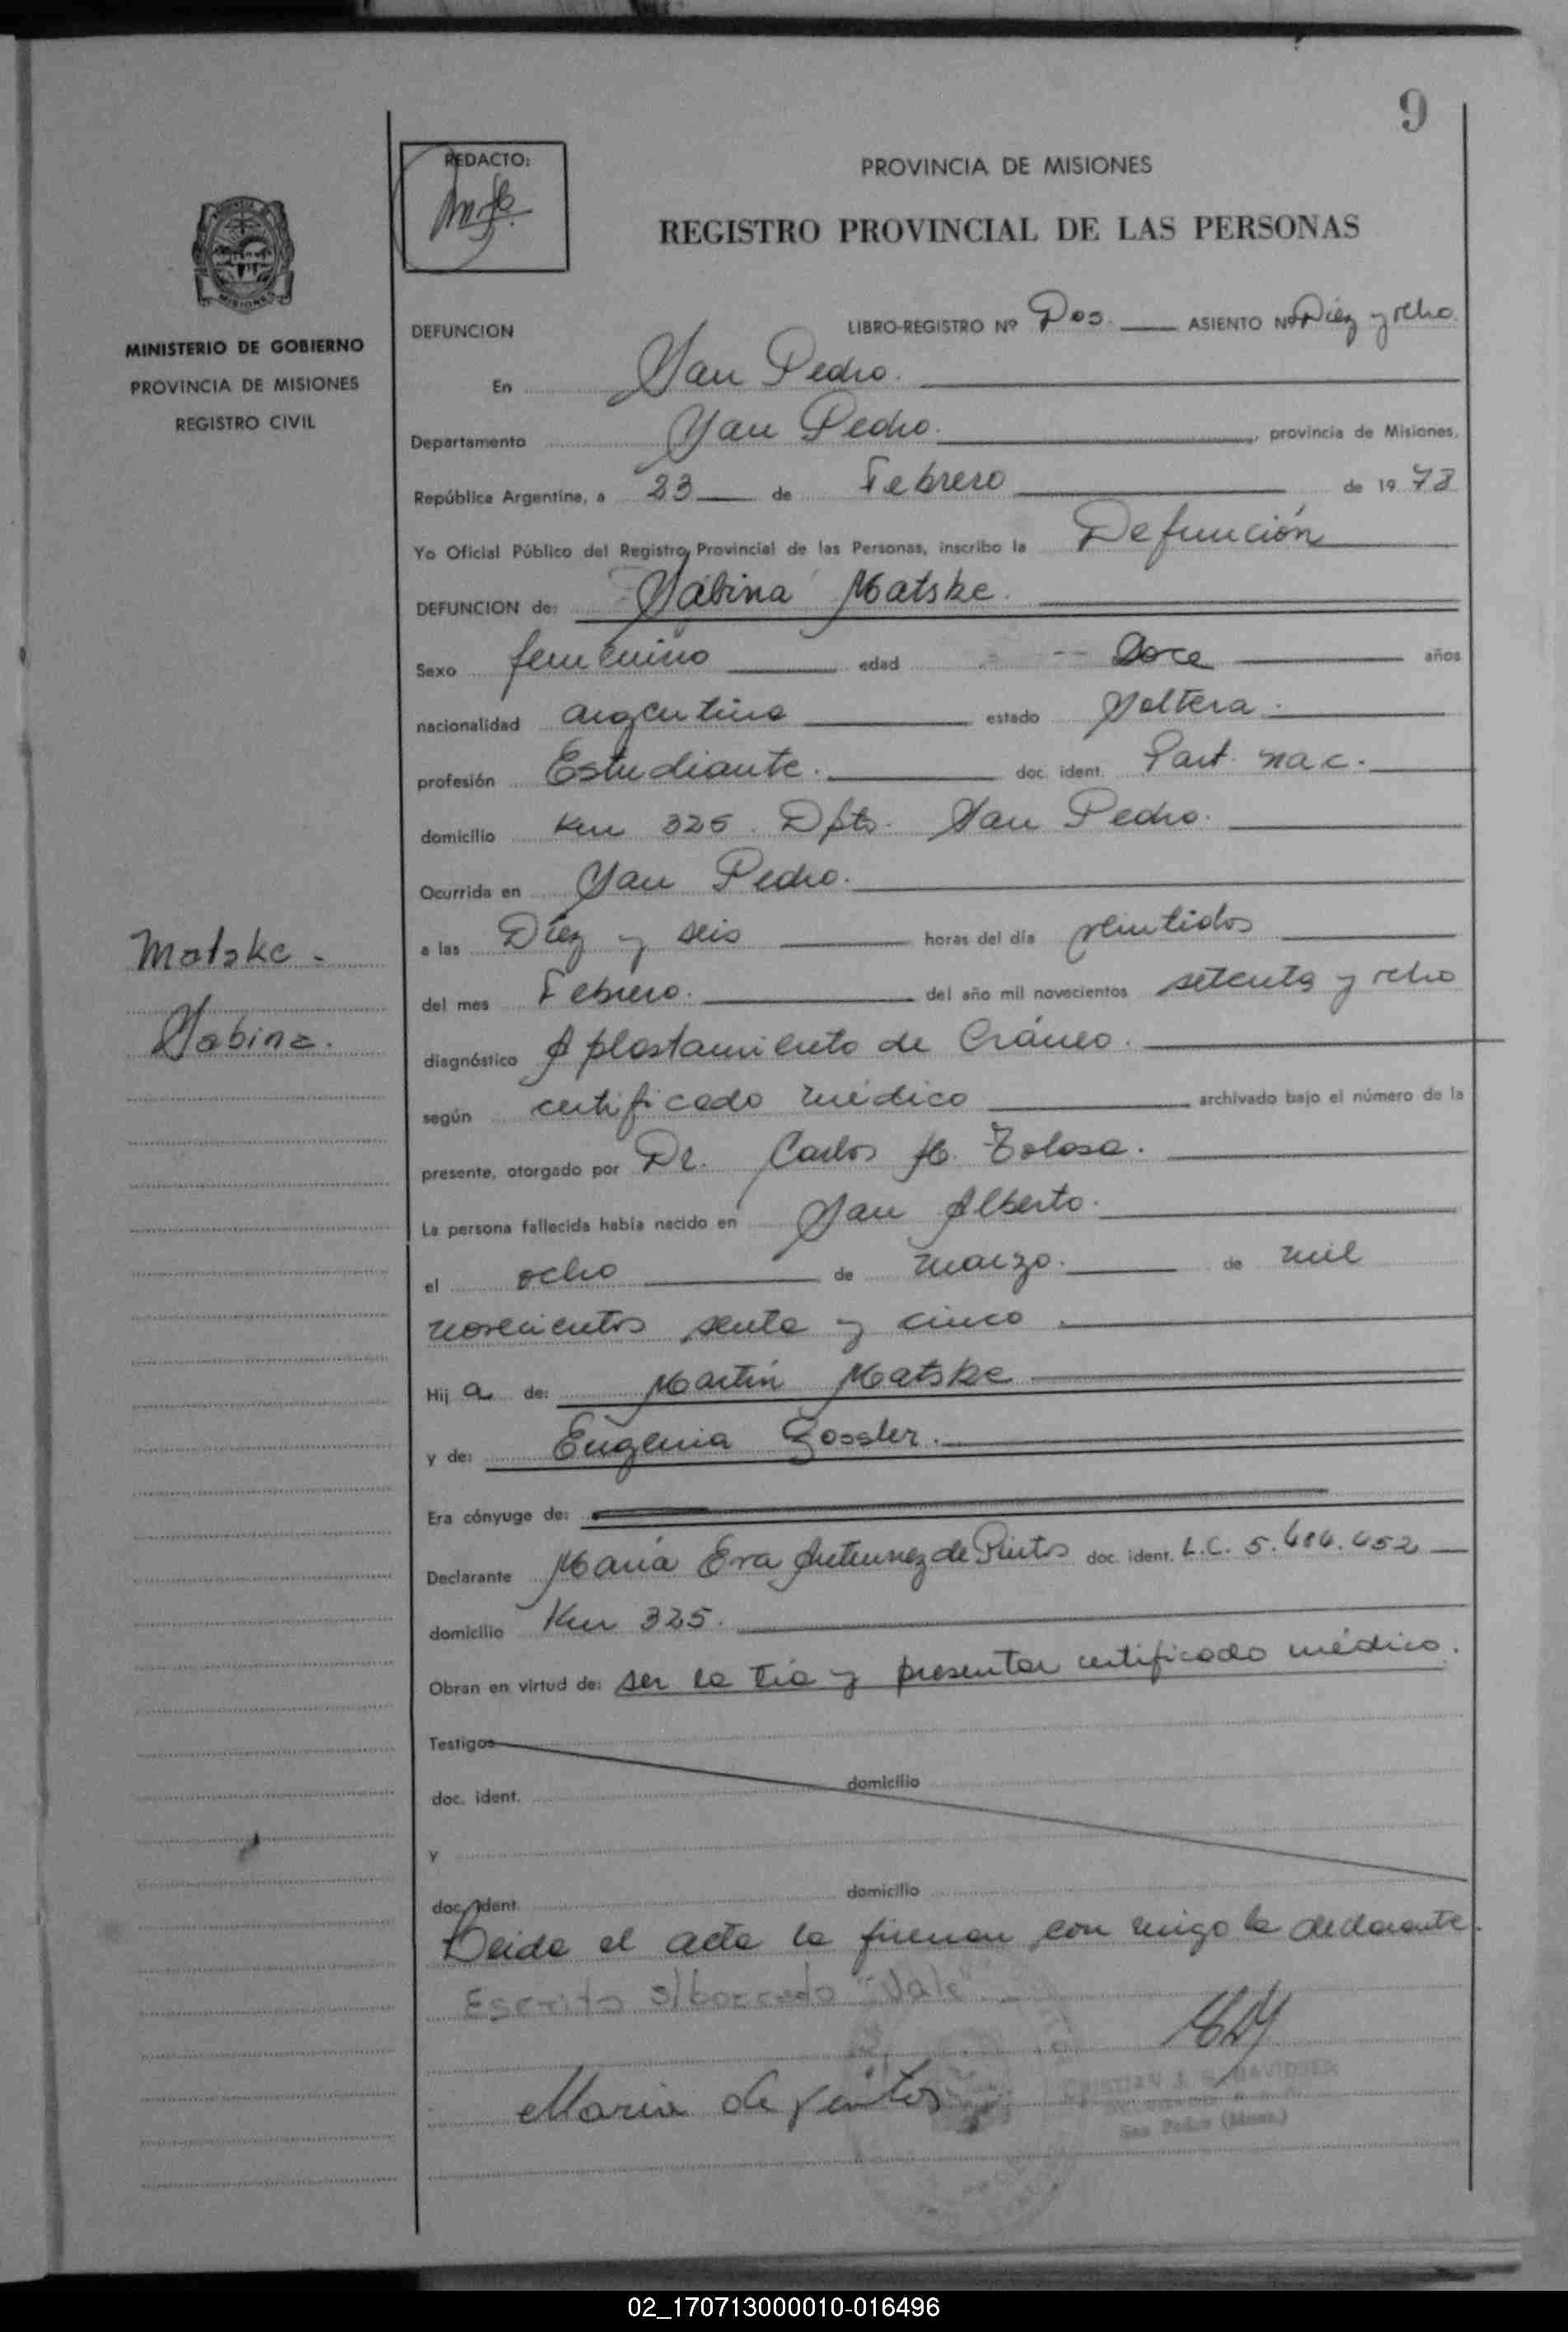 9
REDACTO:
PROVINCIA DE MISIONES
REGISTRO PROVINCIAL DE LAS PERSONAS
MISIONES
MINISTERIO DE GOBIERNO
PROVINCIA DE MISIONES
REGISTRO CIVIL
DEFUNCION LIBRO-REGISTRO Nº Dos. ASIENTO Nº Diez y ocho.
En San Pedro.
Departamento San Pedro. , provincia de Misiones,
República Argentina, a 23 de Febrero de 19 78
Yo Oficial Público del Registro Provincial de las Personas, inscribo la Defunción
DEFUNCION de: Sabina Matske.
Sexo femenino edad Doce años
nacionalidad argentina estado Soltera.
profesión Estudiante. doc. ident. Part. nac.
domicilio Km 325. Dpto. San Pedro.
Ocurrida en San Pedro.
Matske.
a las Diez y seis horas del día veintidos
del mes Febrero. del año mil novecientos setenta y ocho
Sabina.
diagnóstico Aplastamiento de Cráneo.
según certificado médico archivado bajo el número de la
presente, otorgado por Dr. Carlos H. Tolosa.
La persona fallecida había nacido en San Alberto.
el ocho de marzo. de mil
novecientos senta y cinco.
Hij a de: Martín Matske
y de: Eugenia Gossler.
Era cónyuge de:
Declarante María Eva Antunez de Pintos doc. ident. L.C.
domicilio Km 325.
Obran en virtud de: ser la tía y presentar certificado médico.
Testigos
doc. ident. domicilio
y
doc. ident. domicilio
Leida el acta la firman con migo la declarante.
Escrito s/borrado "Vale"
Maria de pintos
San Pedro (Mnes.)
02_170713000010-016496